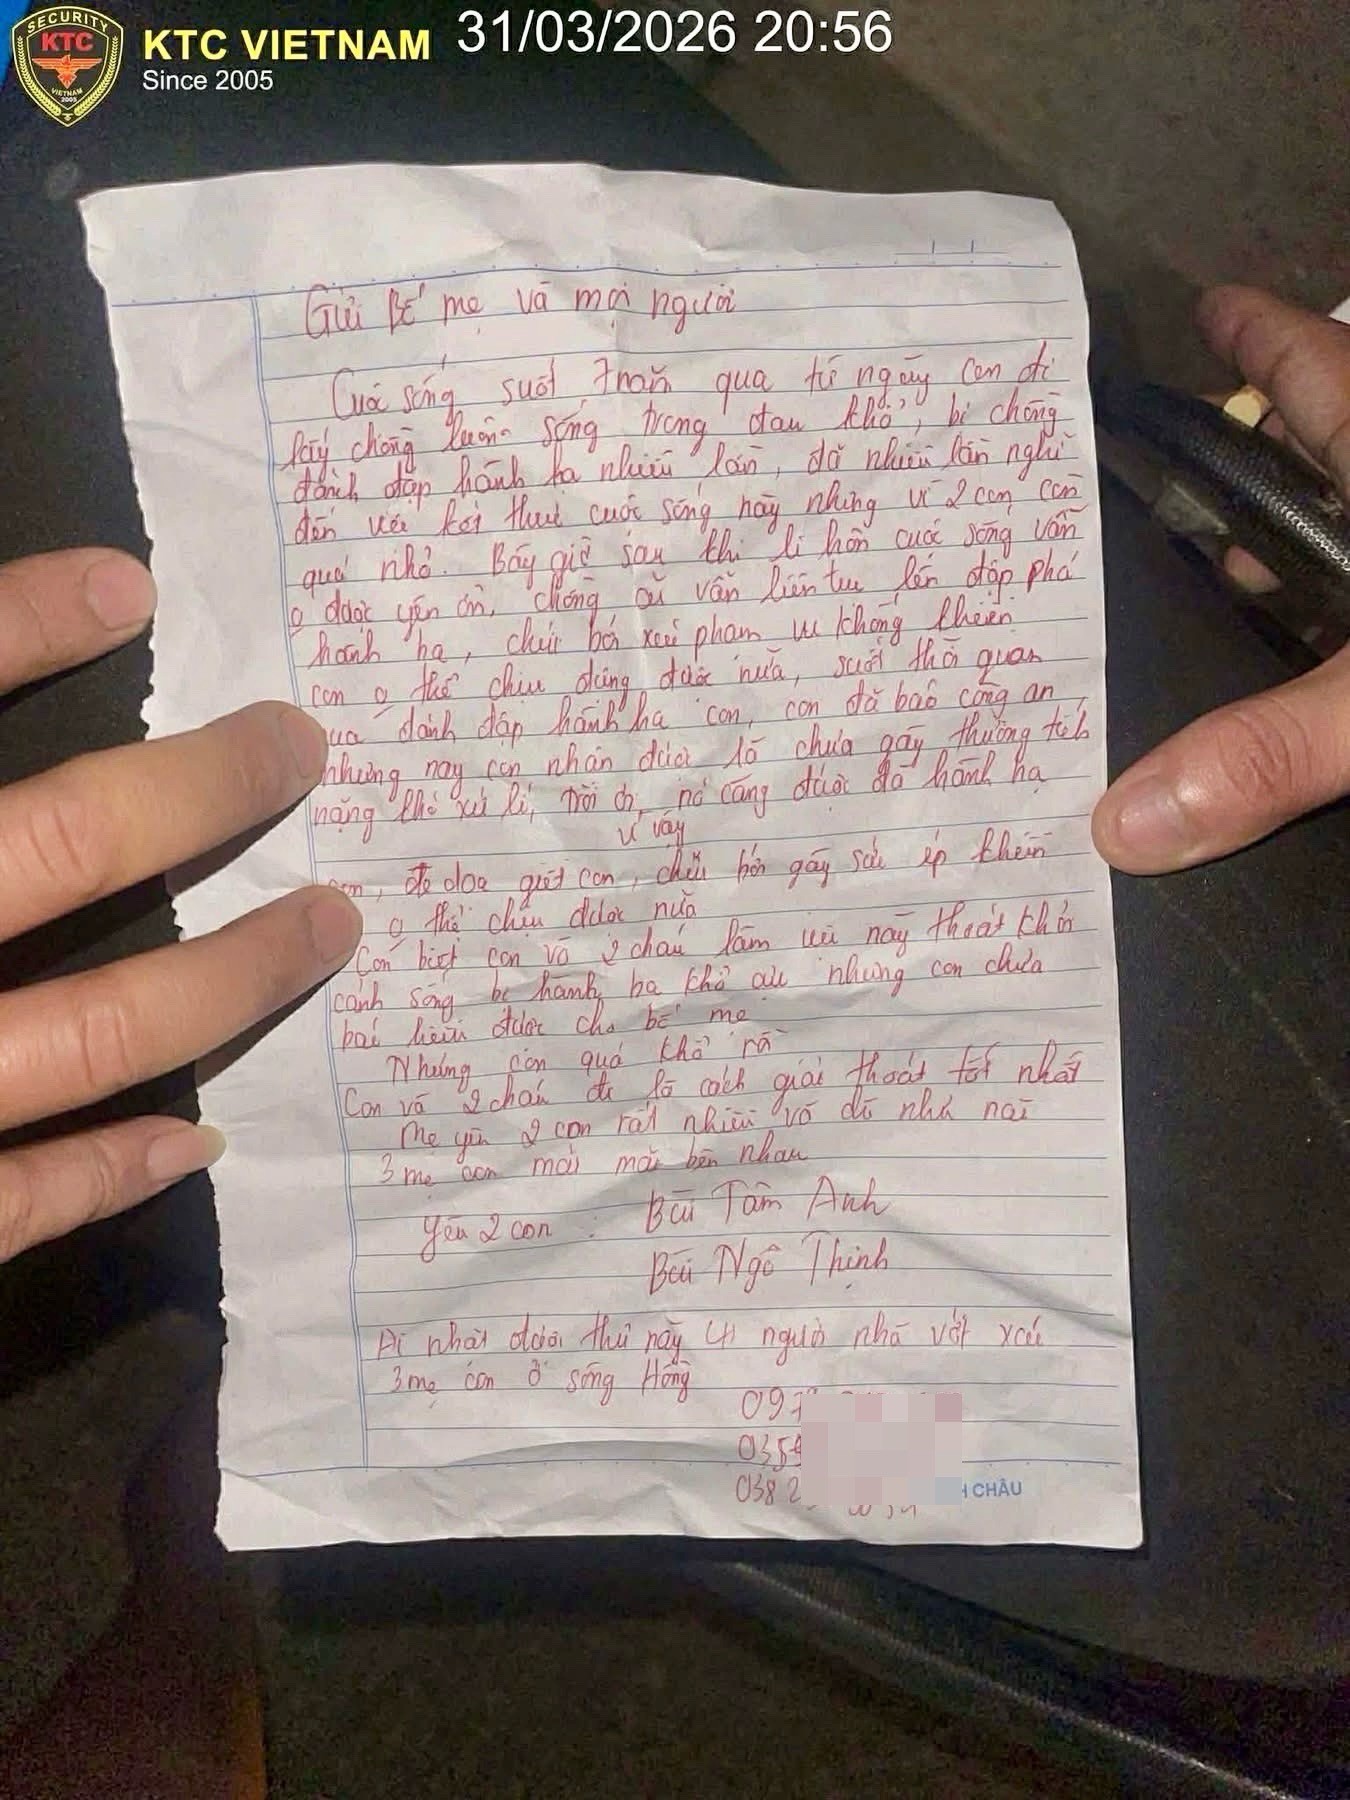 SECURITY
KTC
VIETNAM
2005
KTC VIETNAM
Since 2005
31/03/2026 20:56
Gửi Bố mẹ và mọi người
Cuộc sống suốt 7 năm qua từ ngày con đi
lấy chồng luôn sống trong đau khổ, bị chồng
đánh đập hành hạ nhiều lần, đã nhiều lần nghĩ
đến việc kết thúc cuộc sống này nhưng vì 2 con còn
quá nhỏ. Bây giờ sau khi li hôn cuộc sống vẫn
o được yên ổn, chồng cũ vẫn liên tục lên đập phá
hành hạ, chửi bới xúc phạm vu khống khiến
con o thể chịu đựng được nữa, suốt thời quan
qua đánh đập hành hạ con, con đã báo công an
nhưng nay con nhận được là chưa gây thương tích
nặng khó xử lí, trời ơi nó càng được đà hành hạ
vì vậy
con, đe doạ giết con, chửi bới gây sức ép khiến
o thể chịu được nữa
Con biết con và 2 cháu làm việc này thoát khỏi
cảnh sống bị hành hạ khổ ải nhưng con chưa
báo hiếu được cho bố mẹ
Nhưng con quá khổ rồi
Con và 2 cháu đi là cách giải thoát tốt nhất
Mẹ yêu 2 con rất nhiều và dù như nào
3 mẹ con mãi mãi bên nhau
Yêu 2 con : Bùi Tâm Anh
Bùi Ngô Thịnh
Ai nhặt được thư này gọi người nhà vớt xác
3 mẹ con ở sông Hồng
097
035
038 2
H CHÂU